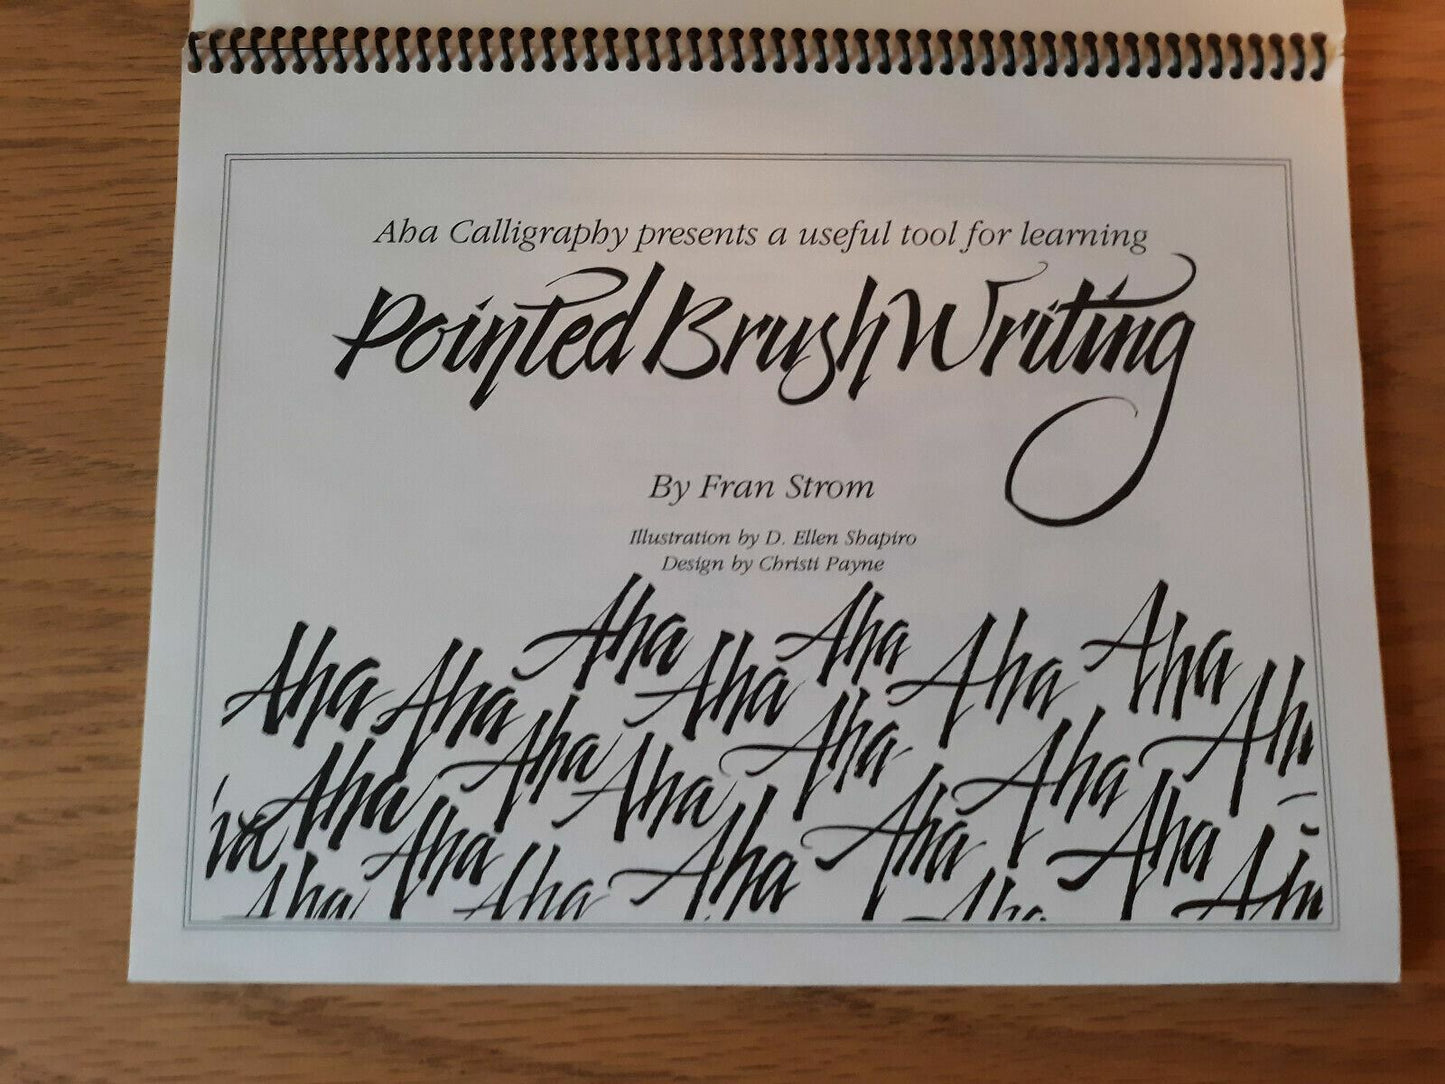 Aha Calligraphy presents a useful tool for learning
Pointed Brush Writing
By Fran Strom
Illustration by D. Ellen Shapiro
Design by Christi Payne
Aha Aha
Aha Aha Aha Aha
Aha Aha Aha
Aha Aha Aha Aha
Aha Aha Aha Aha
Aha Aha